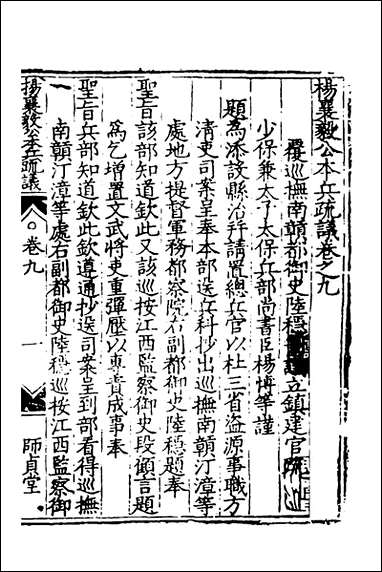 楊襄毅公本兵疏議卷之九
覆巡撫南贛都御史陸穩 立鎮建官疏
少保兼太子太保兵部尚書臣楊博等謹
題為添設縣治并請置總兵官以杜三省盜源事職方
清吏司案呈奉本部送兵科抄出巡撫南贛汀漳等
處地方提督軍務都察院右副都御史陸穩題奉
聖旨該部知道欽此又該巡按江西監察御史段顧言題
為乞增置文武將吏重彈壓以專責成事奉
聖旨兵部知道欽此欽遵通抄送司案呈到部看得巡撫
南贛汀漳等處右副都御史陸穩巡按江西監察御
楊襄毅公本兵疏議
卷九
一
師貞堂